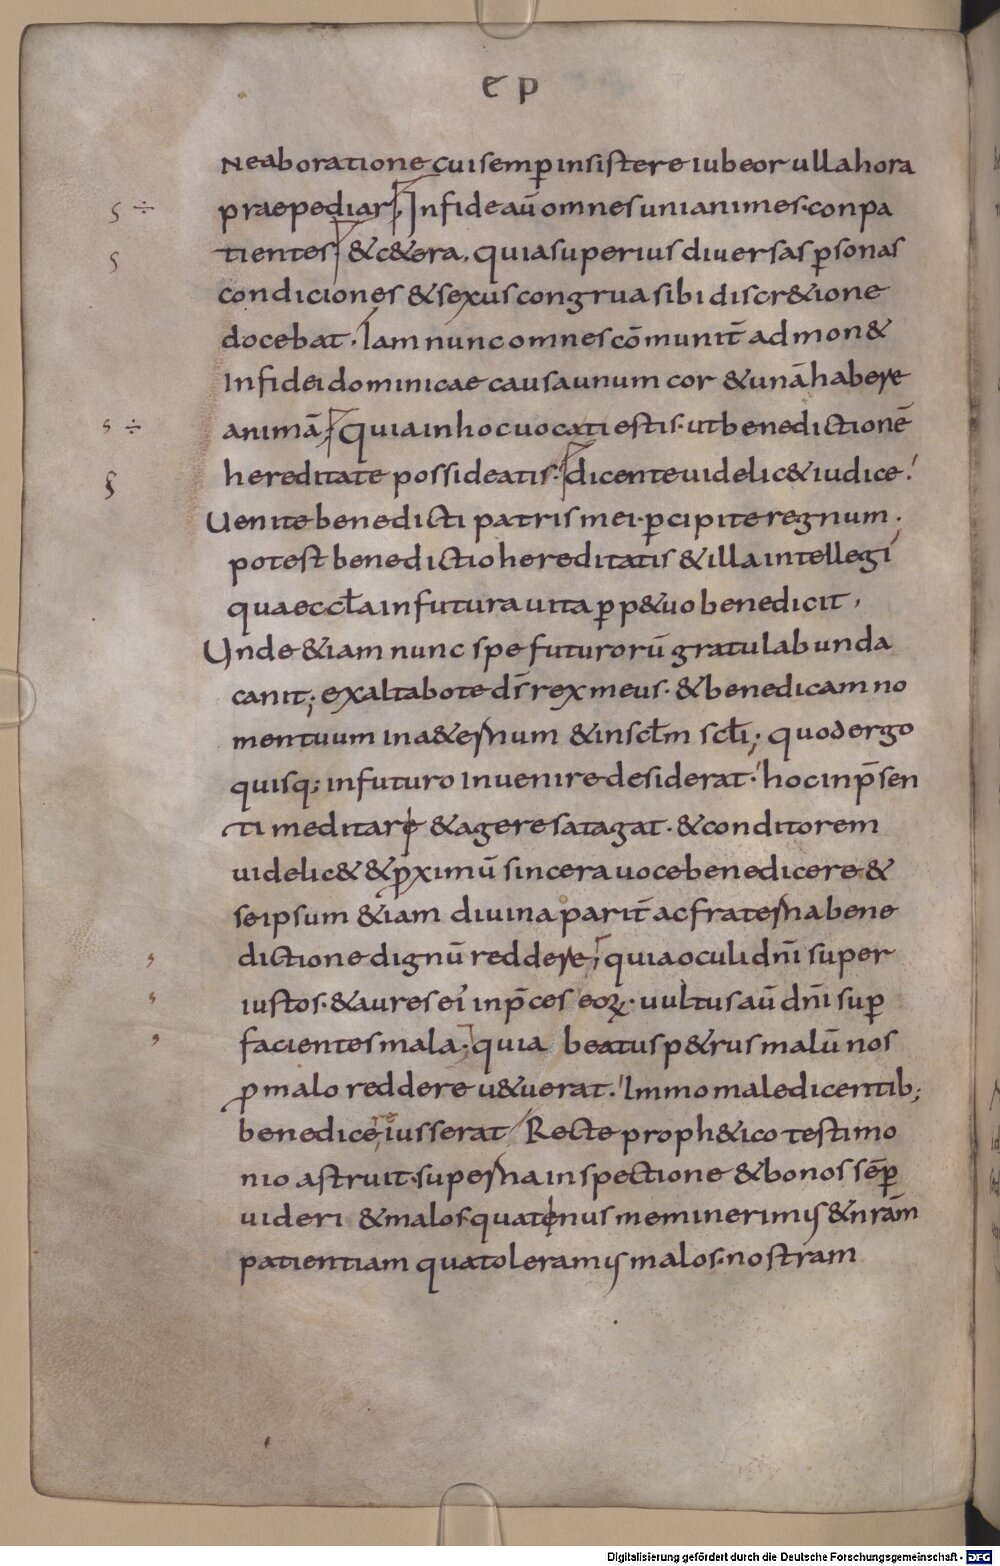 ep
ne ab oratione cui semp̄ insistere iubeor ulla hora
praepediar, In fide aū omnes unianimes· conpa
tientes· & c&era, quia superius diversas p̄sonas
condiciones & sexus congrua sibi discr&ione
docebat, Iam nunc omnes cōmunit̄ admon&
In fidei dominicae causa unum cor & unā habere
animā; Quia in hoc uocati estis· ut benedictionē
hereditate possideatis; dicente uidelic& iudice:
Uenite benedicti patris mei· p̄cipite regnum.
potest benedictio hereditatis & illa intellegi
qua eccl̄a in futura uita p̄p&uo benedicit,
Unde &iam nunc spe futurorū gratulabunda
canit; exaltabo te ds̄ rex meus· & benedicam no
men tuum in a&ernum & in scl̄m scl̄i; quod ergo
quisq; in futuro invenire desiderat· hoc in p̄sen
ti meditare & agere satagat· & conditorem
uidelic& & p̄ximū sincera uoce benedicere &
se ipsum &iam divina parit̄ ac fraterna bene
dictione dignū reddere; quia oculi dn̄i super
iustos· & aures ei' in p̄ces eoꝝ· uultus aū dn̄i sup̄
facientes mala; quia beatus p&rus malū nos
p̄ malo reddere u&uerat· Immo maledicentib;
benedicere iusserat Recte proph&ico testimo
nio astruit· superna inspectione & bonos sēp̄
uideri & malos· quatenus meminerimus & nrām
patientiam qua toleramus malos· nostram
Digitalisierung gefördert durch die Deutsche Forschungsgemeinschaft - DFG